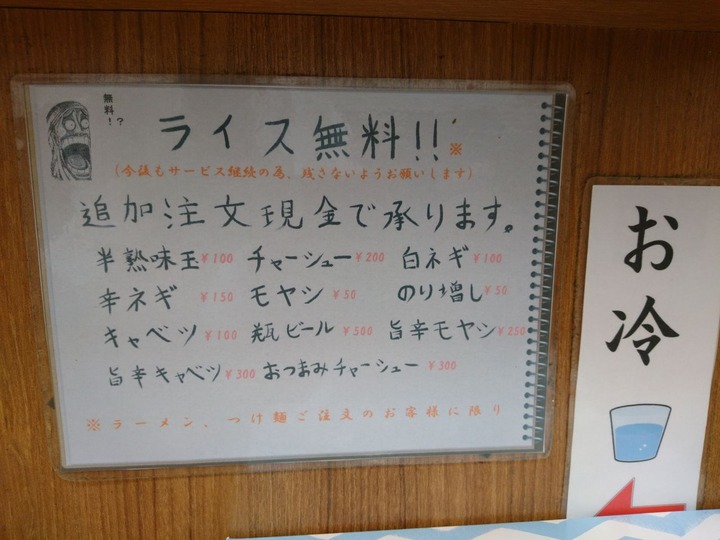 無料！？
ライス無料!!※
(今後もサービス継続の為、残さないようお願いします)
追加注文現金で承ります。
半熟味玉¥100 チャーシュー¥200 白ネギ¥100
辛ネギ ¥150 モヤシ ¥50 のり増し¥50
キャベツ ¥100 瓶ビール ¥500 旨辛モヤシ¥250
旨辛キャベツ¥300 おつまみチャーシュー ¥300
※ラーメン、つけ麺ご注文のお客様に限り
お冷